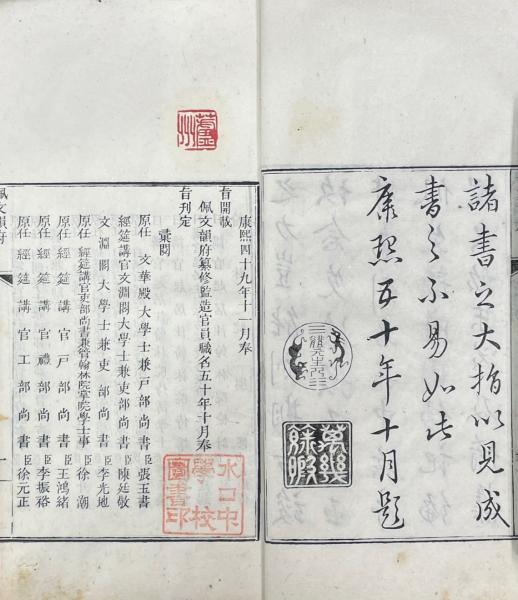 諸書之大指以見成
書之不易如此
康熙五十年十月題
萬幾
餘暇
康熙四十九年十一月奉
旨開載
佩文韻府纂修監造官員職名五十年十月奉
旨刊定
彙閱
原任文華殿大學士兼戶部尚書臣張玉書
經筵講官文淵閣大學士兼吏部尚書臣陳廷敬
文淵閣大學士兼吏部尚書臣李光地
原任經筵講官吏部尚書兼管翰林院掌院學士事臣徐潮
原任經筵講官戶部尚書臣王鴻緒
原任經筵講官禮部尚書臣李振裕
原任經筵講官工部尚書臣徐元正
佩文韻府
水口中
學校
圖書印